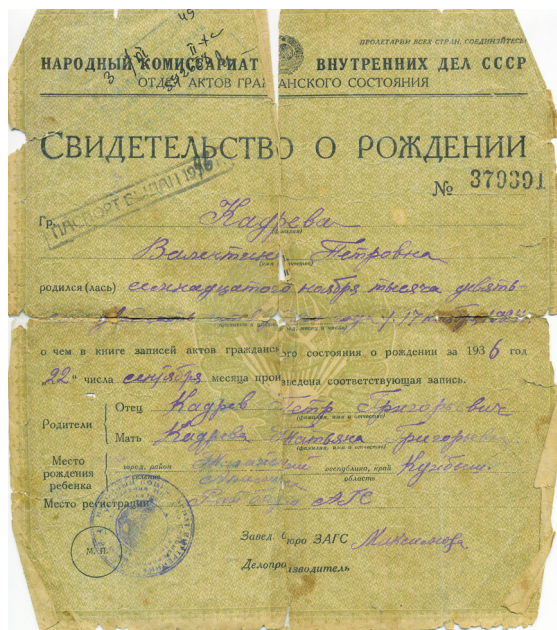 ПРОЛЕТАРИИ ВСЕХ СТРАН, СОЕДИНЯЙТЕСЬ
НАРОДНЫЙ КОМИССАРИАТ ВНУТРЕННИХ ДЕЛ СССР
ОТДЕЛ АКТОВ ГРАЖДАНСКОГО СОСТОЯНИЯ
СВИДЕТЕЛЬСТВО О РОЖДЕНИИ
№ 379391
ПАСПОРТ ВЫДАН 19
Гр. Кадрева
(фамилия)
Валентина Петровна
(имя и отчество)
родился (лась) семнадцатого ноября тысяча девять-
17 ноября
о чем в книге записей актов гражданского состояния о рождении за 1936 год
22 " числа сентября месяца произведена соответствующая запись.
Родители
Отец Кадрев Петр Григорьевич
(фамилия, имя и отчество)
Мать Кадрева Татьяна
(фамилия, имя и отчество)
Место рождения ребенка
город, район
республика, край Куйбыш.
область
Место регистрации Рай бюро АГС
М. П.
Завед. бюро ЗАГС Максимова
Делопроизводитель